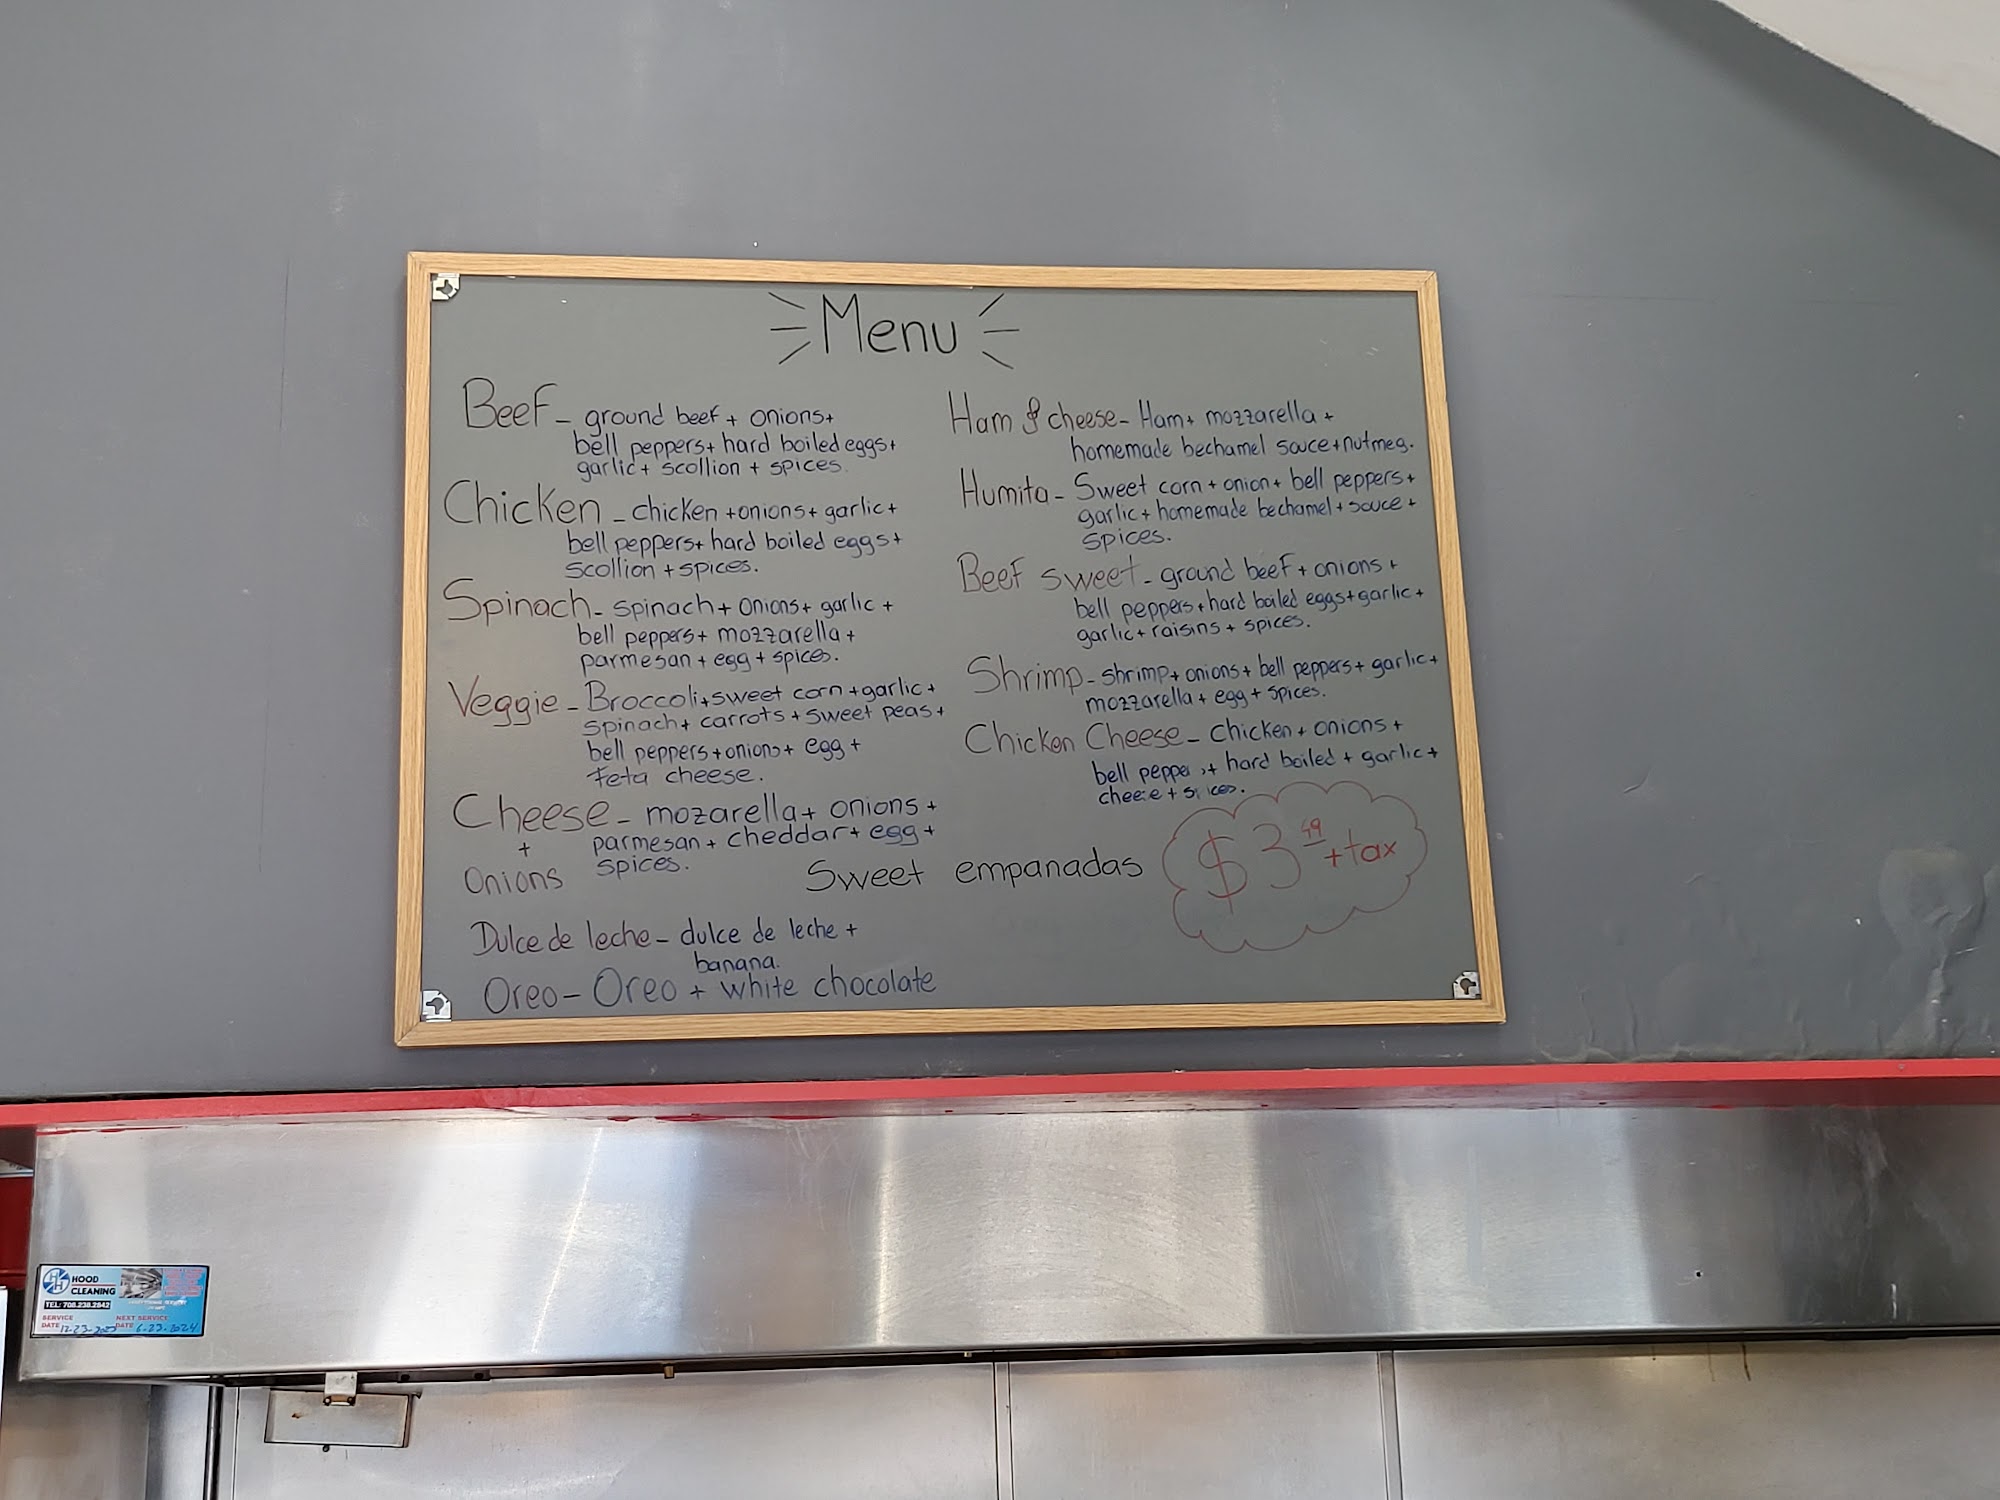 Menu
Beef - ground beef + onions+
bell peppers+ hard boiled eggs+
garlic+ scollion + spices.
Chicken - chicken +onions+ garlic+
bell peppers+ hard boiled eggs+
scollion + spices.
Spinach - spinach+ onions+ garlic +
bell peppers+ mozzarella +
parmesan + egg + spices.
Veggie - Broccoli+sweet corn +garlic+
spinach+ carrots + sweet peas+
bell peppers +onions+ egg +
feta cheese.
Cheese - mozarella+ onions +
+
Onions
parmesan + cheddar+ egg +
spices.
Ham & cheese - Ham+ mozzarella +
homemade bechamel sauce+nutmeg.
Humita - Sweet corn + onion+ bell peppers+
garlic+ homemade bechamel + sauce +
spices.
Beef sweet - ground beef + onions +
bell peppers+hard boiled eggs+garlic+
garlic+ raisins + spices.
Shrimp - shrimp+ onions+ bell peppers+ garlic+
mozzarella + egg + spices.
Chicken Cheese - Chicken + onions+
bell pepper + hard boiled + garlic+
cheese + spices.
Sweet empanadas
$3 49 + tax
Dulce de leche - dulce de leche +
banana.
Oreo - Oreo + white chocolate
HOOD
CLEANING
TEL: 708.238.2842
SERVICE DATE 12-23-2023
NEXT SERVICE DATE 6-23-2024